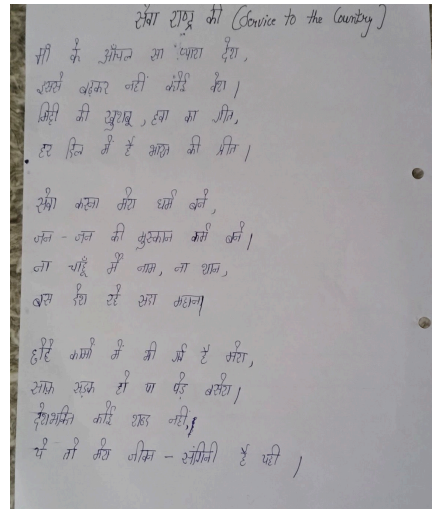 सेवा राष्ट्र की (Service to the Country)
माँ के आँचल सा प्यारा देश,
इससे बढ़कर नहीं कोई वेश।
मिट्टी की खुशबू, हवा का गीत,
हर दिल में है भारत की प्रीत।
सेवा करना मेरा धर्म बने,
जन-जन की मुस्कान कर्म बने।
ना चाहूँ मैं नाम, ना शान,
बस देश रहे सदा महान।
छोटे कामों में भी गर्व है मेरा,
साफ़ सड़क हो या पेड़ बसेरा।
देशभक्ति कोई शब्द नहीं,
ये तो मेरा जीवन-संगिनी है यही।